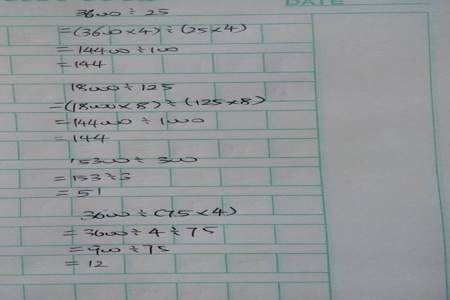 DATE
3600÷25
=(3600×4)÷(25×4)
=14400÷100
=144
18000÷125
=(18000×8)÷(125×8)
=144000÷1000
=144
15300÷300
=153÷3
=51
3600÷(75×4)
=3600÷4÷75
=900÷75
=12